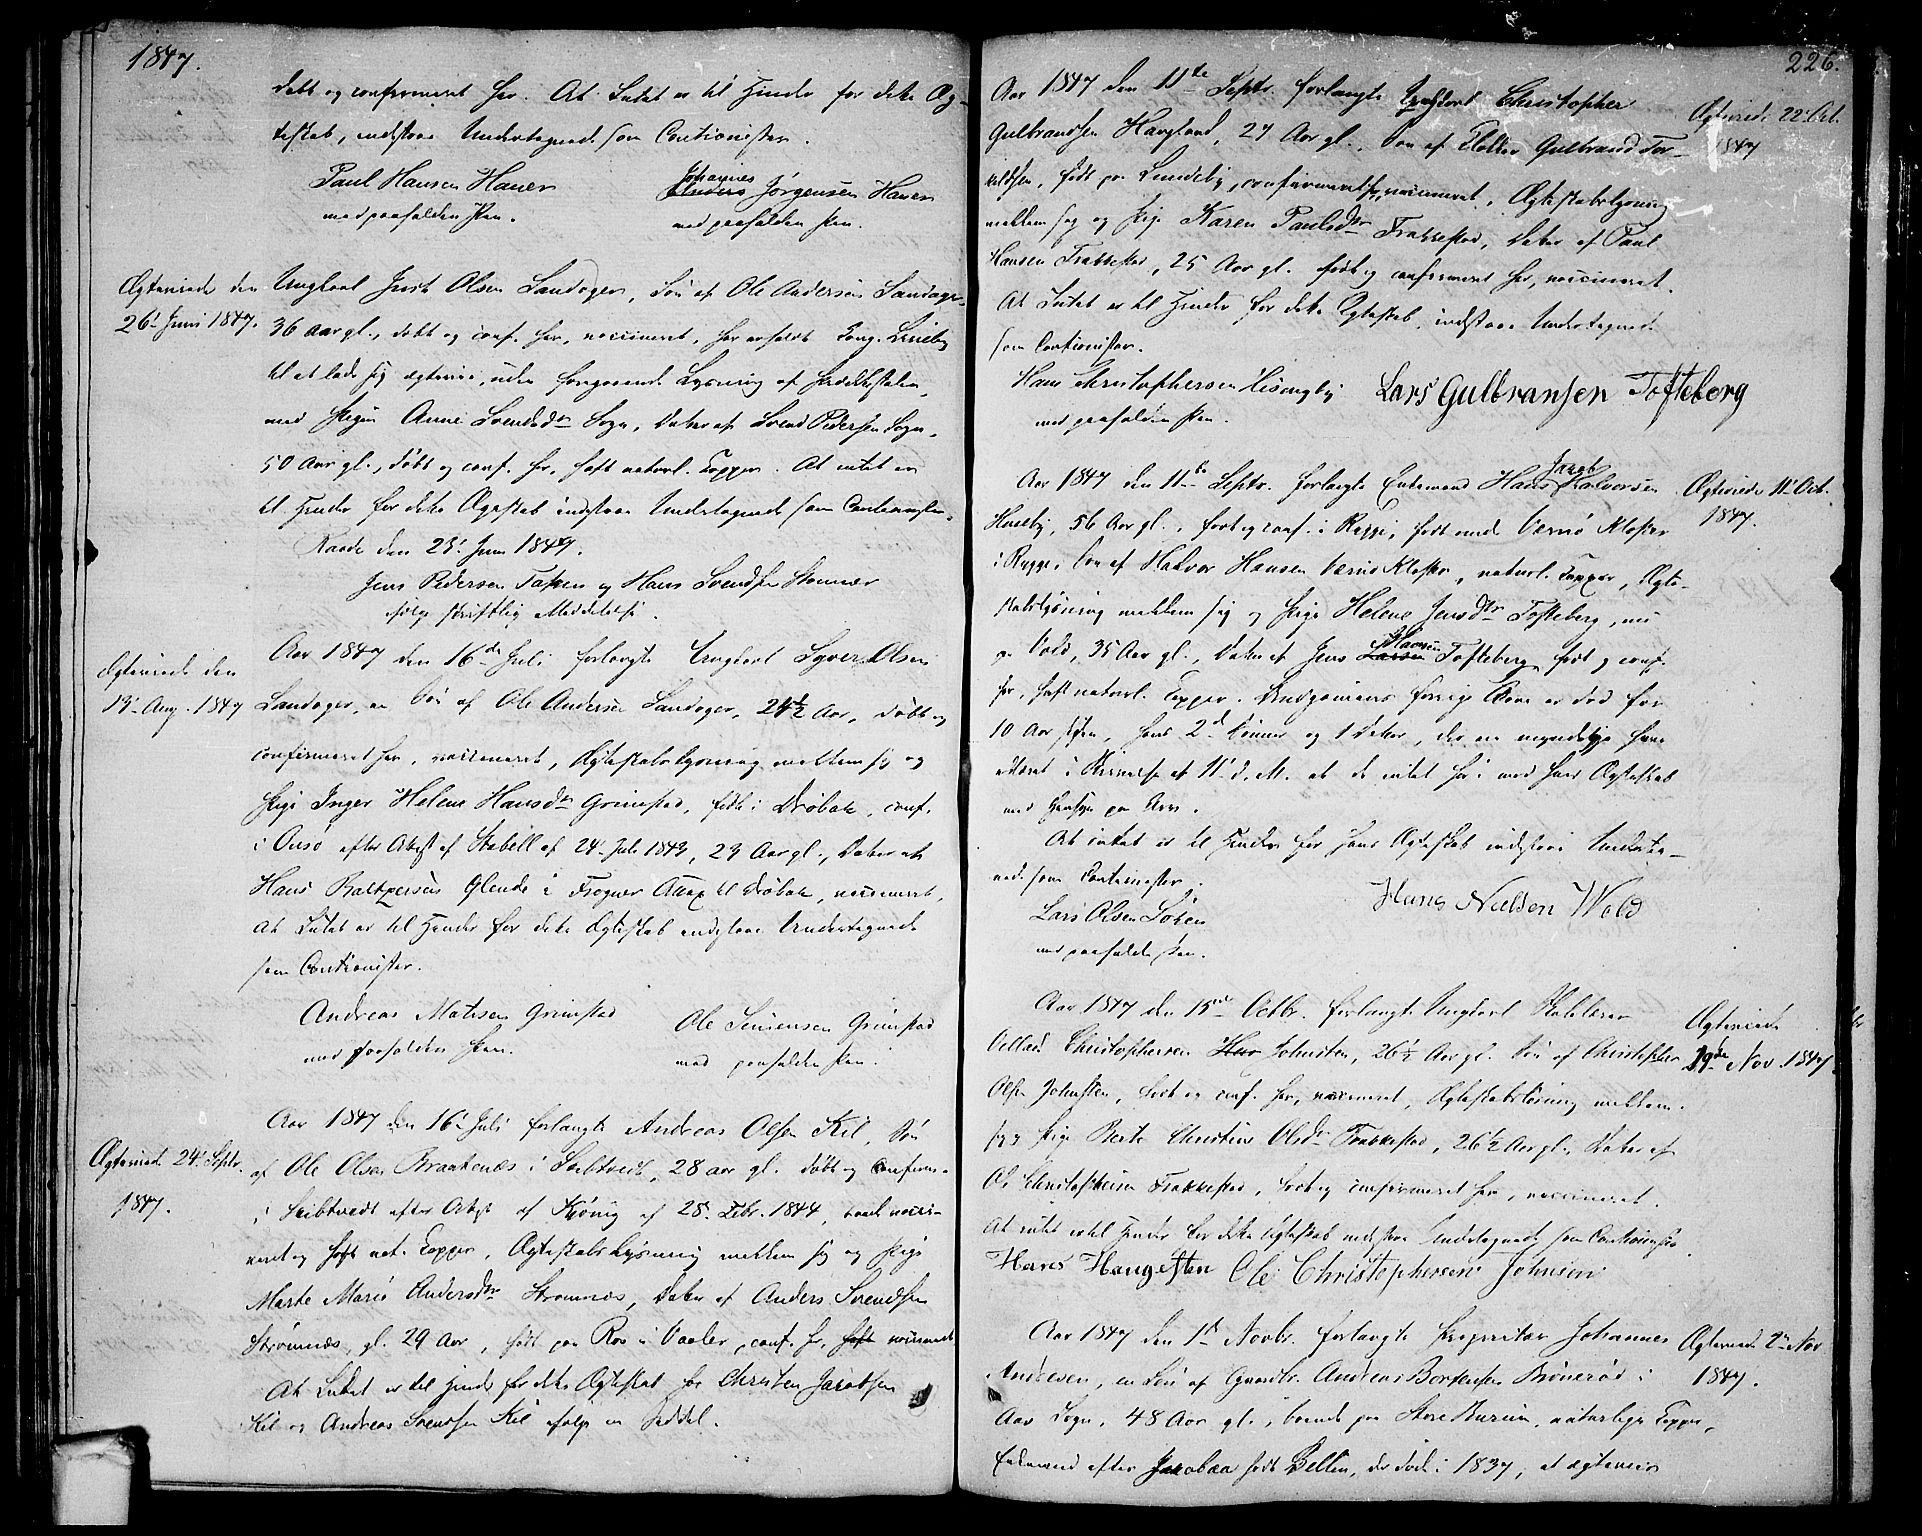 1847.
døbt og confirmeret her. At Intet er til Hinder for dette Æg-
teskab, indstaae Undertegnede som Cautionister.
Paul Hansen Hauer
Johannes
Anders Jørgensen Hauer
med paaholden Pen.
med paaholden Pen.
Ægteviede den
26' Juni 1847.
Ungkarl Olsen Sandager, Søn af Ole Andersen Sandager
36 Aar gl., døbt og conf. her, vaccineret, har erholdt
til at lade sig ægtevie, uden foregaaende Lysning af Prædikestolen,
med Pigen Anne Svendsdr Sogn, Datter af Svend Pedersen Sogn,
50 Aar gl., døbt og conf. her, havt naturl. Kopper. At intet er
til Hinder for dette Ægteskab indstaae Undertegnede som Cautionister.
Raade den 25' Juni 1847.
Jens Pedersen og Hans Svendsen
ifølge skriftlig Meddelelse.
Ægteviede den
19' Aug. 1847
Aar 1847 den 16de Juli forlangte Ungkarl Syver Olsen
Sandager, en Søn af Ole Andersen Sandager, 24½ Aar, døbt og
confirmeret her, vaccineret, Ægteskabslysning mellem sig og
Pige Inger Helene Hansdr Grimstad, født i Drøbak, conf.
i Onsø efter Attest af Stabell af 24' Juli 1843, 29 Aar gl., Datter af
Hans Baltzersen Glende i Frogner Annex til Drøbak, vaccineret.
At Intet er til Hinder for dette Ægteskab indstaae Undertegnede
som Cautionister.
Andreas Matisen Grimstad
Ole Simensen Grimstad
med paaholden Pen.
med paaholden Pen.
Ægteviede 24' Septr.
1847.
Aar 1847 den 16' Juli forlangte Andreas Olsen Kil, Søn
af Ole Olsen Braatenæs i Skibtvedt, 28 Aar gl. døbt og confirm.
i Skibtvedt efter Attest af Kønig af 28' Febr. 1844, baade vacci-
neret og havt nat. Kopper, Ægteskabslysning mellem sig og Pige
Marte Marie Andersdr Strømnæs, Datter af Anders Svendsen
Strømnæs, gl. 29 Aar, født paa Roe i Vaaler, conf. her, havt vaccineret
At Intet er til Hinder for dette Ægteskab Christen Jacobsen
Kil og Andreas Svendsen Kil ifølge en Seddel.
226.
Aar 1847 den 11te Septr. forlangte Ungkarl Christopher
Gulbrandsen Haugland, 27 Aar gl., Søn af Gulbrand Tor-
kildsen, født paa Lundeby, confirmeret her, vaccineret, Ægteskabslysning
mellem sig og Pige Karen Paulsdtr Frakkestad, Datter af Paul
Hansen Frakkestad, 25 Aar gl. født og confirmeret her, vaccineret.
At Intet er til Hinder for dette Ægteskab, indstaae Undertegnede
som Cautionister.
Hans Christophersen
Lars Gulbransen Tofteberg
med paaholden Pen.
Ægteviede 22' Oct.
1847
Aar 1847 den 11te Septr. forlangte Enkemand Hans Jacob Halvorsen
Huseby, 56 Aar gl., født og conf. i Rygge, født Værnø Kloster
i Rygge, Søn af Halvor Hansen Værnø Kloster, naturl. Kopper, Ægte-
skabslysning mellem sig og Pige Helene Jensdtr Tofteberg, nu
35 Aar gl., Datter af Jens Larsen Hansen Tofteberg, født og conf.
her, havt naturl. Kopper. Brudgommens forrige Kone er død for
10 Aar siden, hans 2de Sønner og 1 Datter, der ere myndige have
erklæret i Skrivelse af 11' d. M. at de intet har imod hans Ægteskab
med Hensyn paa Arv.
At intet er til Hinder for hans Ægteskab indstaae Underteg-
nede som Cautionister.
Lars Olsen
Hans Nielsen Wold
med paaholden Pen.
Ægteviede 11' Oct.
1847.
Aar 1847 den 15de Octbr. forlangte Ungkarl
Christophersen Johnsten, 26½ Aar gl. Søn af Christopher
Olsen Johnsten, født og conf. her, vaccineret, Ægteskabslysning mellem
sig og Pige Berte Christine Olsdr Frakkestad, 26½ Aar gl., Datter af
Ole Christophersen Frakkestad, født og confirmeret her, vaccineret.
At intet er til Hinder for dette Ægteskab indstaae Undertegnede som Cautionister.
Hans Haugesten Ole Christophersen Johnsen
Ægteviede
19de Nov. 1847
Aar 1847 den 1ste Novbr. forlangte Proprietær Johannes
Andresen, en Søn af Gaardbr. Andreas Brønerød i
Aas Sogn, 48 Aar gl., boende paa Store Burum, naturlige Kopper,
Enkemand efter Jacobaa født Bellin, der døde i 1837, at ægtevies
Ægteviede 2' Nov
1847.